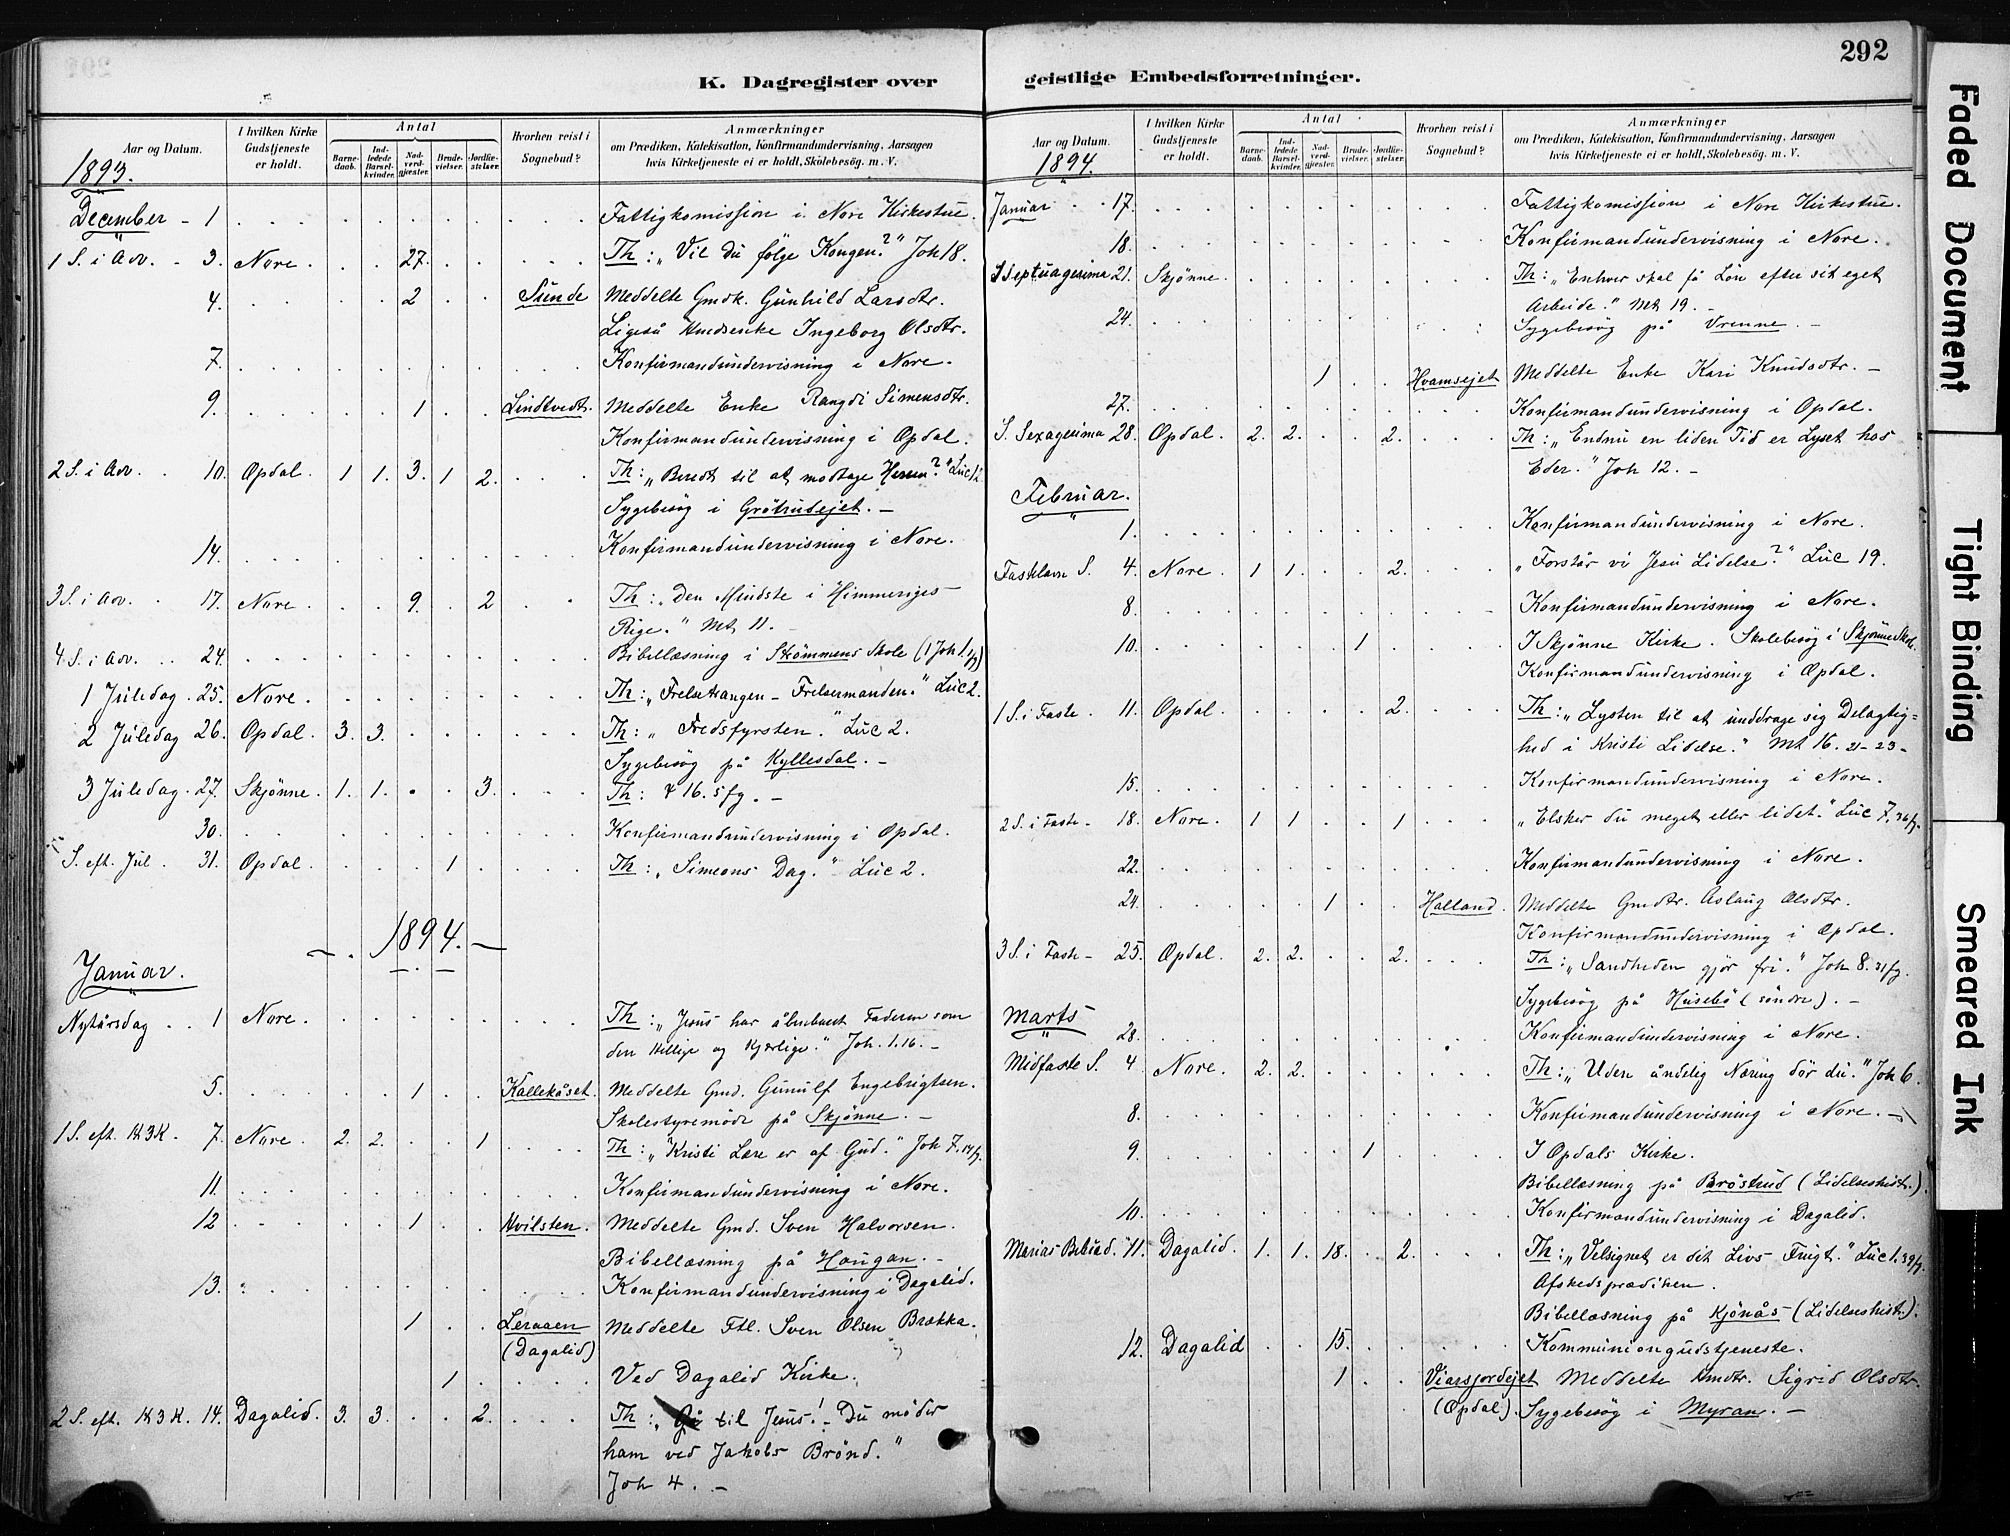 K. Dagregister over
Aar og Datum.
I hvilken Kirke Gudstjeneste er holdt.
Antal
Barnedaab.
Indledede Barselkvinder.
Nadverdgjester.
Brudevielser.
Jordfæstelser.
Hvorhen reist i Sognebud?
Anmærkninger
om Prædiken, Katekisation, Konfirmandundervisning, Aarsagen
hvis Kirketjeneste ei er holdt, Skolebesög. m. V.
1893.
December - 1 Fattigkomission i Nore Kirkestue.
1 S. i Adv. - 3. Nore. 27. Th: "Vil du følge Kongen?" Joh 18.
4. 2 Sunde Meddelte Gmdk. Gunhild Larsdtr.
Ligeså Husenke Ingeborg Olsdtr.
7. Konfirmandundervisning i Nore.
9. 1 Lindtvedt. Meddelte Enke Rangdi Simensdtr.
Konfirmandundervisning i Opdal.
2 S. i Adv. 10. Opdal. 1 1. 3. 1 2. Th: "Beredt til at modtage Herren?" Luc 12.
Sygebesög i Grötrudejet. -
14. Konfirmandundervisning i Nore.
3 S. i Adv. 17. Nore. 9. 2 Th: "Den Mindste i Himmeriges
Rige." Mt. 11. -
4 S. i Adv. 24. Bibellæsning i Strömmens Skole (1 Joh 1. 1/7)
1 Juledag. 25. Nore. Th: "Frelsetrangen - Frelsermanden." Luc 2.
2 Juledag 26. Opdal. 3. 3. Th: "Fredsfyrsten." Luc 2.
Sygebesög på Kyllesdal. -
3 Juledag. 27. Skjönne. 1. 1. 3. Th: 16. 5 fg. -
30. Konfirmandundervisning i Opdal.
S. eft. Jul 31. Opdal. 1 Th: "Simeons Dag." Luc 2.
1894. -
Januar.
Nytårsdag . . 1 Nore. Th: "Jesus har åbenbaret Faderen som
den Hellige og Kjærlige." Joh. 1. 16. -
5. 1 Kallekåset. Meddelte Gmd. Gunulf Engebrigtsen.
Skolestyremöde på Skjönne. -
1 S. eft. H3K. 7. Nore. 2. 2. 1 Th: "Kristi Lære er af Gud." Joh 7. 14 fg.
11. Konfirmandundervisning i Nore.
12 1 Hvilsten. Meddelte Gmd. Sven Halvorsen.
Bibellæsning på Hougan. -
13. Konfirmandundervisning i Dagalid.
1 Leraaen Meddelte Ftl. Sven Olsen Brække.
(Dagalid)
1 Ved Dagalid Kirke.
2 S. eft. H3K. 14. Dagalid. 3. 3. 2. Th: "Gå til Jesus! - Du möder
ham ved Jakobs Brönd."
Joh 4. -
geistlige Embedsforretninger.
292
Aar og Datum.
I hvilken Kirke Gudstjeneste er holdt.
Antal
Barnedaab.
Indledede Barselkvinder.
Nadverdgjester.
Brudevielser.
Jordfæstelser.
Hvorhen reist i Sognebud?
Anmærkninger
om Prædiken, Katekisation, Konfirmandundervisning, Aarsagen
hvis Kirketjeneste ei er holdt, Skolebesög. m. V.
1894.
Januar . . 17. Fattigkomission i Nore Kirkestue.
18. Konfirmandundervisning i Nore.
S Septuagesima 21. Skjönne. Th: "Enhver skal få Lön efter sit eget
Arbeide." Mt 19. -
24. Sygebesög på Vrenne. -
1 Hvamsejet Meddelte Enke Kari Knudsdtr. -
27. Konfirmandundervisning i Opdal.
S. Sexagesima 28. Opdal. 2. 2. 2. Th: "Endnu en liden Tid er Lyset hos
Eder." Joh 12. -
Februar.
1. Konfirmandundervisning i Nore.
Fastelavn S. 4. Nore. 1 1. 2. "Forstår vi Jesu Lidelse?" Luc 19.
8. Konfirmandundervisning i Nore.
10. 1 I Skjönne Kirke. Skolebesög i Skjönne Skole.
Konfirmandundervisning i Opdal.
1 S. i Faste. 11. Opdal. 2. Th: "Lysten til at unddrage sig Delagtig-
hed i Kristi Lidelse." Mt 16. 21-23-
15. Konfirmandundervisning i Nore.
2 S. i Faste - 18. Nore. 1 1 1 "Elsker du meget eller lidet." Luc 7. 36 fg.
22. Konfirmandundervisning i Nore.
24. 1 Halland. Meddelte Gmdtr. Aslaug Olsdtr.
Konfirmandundervisning i Opdal.
3 S. i Faste - 25. Opdal. 2. 2. 2. Th: "Sandheden gjör fri." Joh 8. 31 fg.
Sygebesög på Husebö (söndre). -
Marts
28. Konfirmandundervisning i Nore.
Midfaste S. 4 Nore. 2. 2. Th: "Uden åndelig Næring dör du." Joh 6.
8. Konfirmandundervisning i Nore. -
9. 1 I Opdals Kirke.
Bibellæsning på Bröstrud (Lidelseshist.).
10. Konfirmandundervisning i Dagalid.
Marias Bebud. 11. Dagalid. 1. 1. 18. 2. Th: "Velsignet er dit Livs Frugt." Luc 1. 39 fg.
Afskedsprædiken.
Bibellæsning på Kjönås (Lidelseshist.).
12. Dagalid 15. Kommuniongudstjeneste.
1 Viarsjordejet Meddelte Gmdtr. Sigrid Olsdtr.
(Opdal). Sygebesög i Myran. -
Faded Document
Tight Binding
Smeared Ink